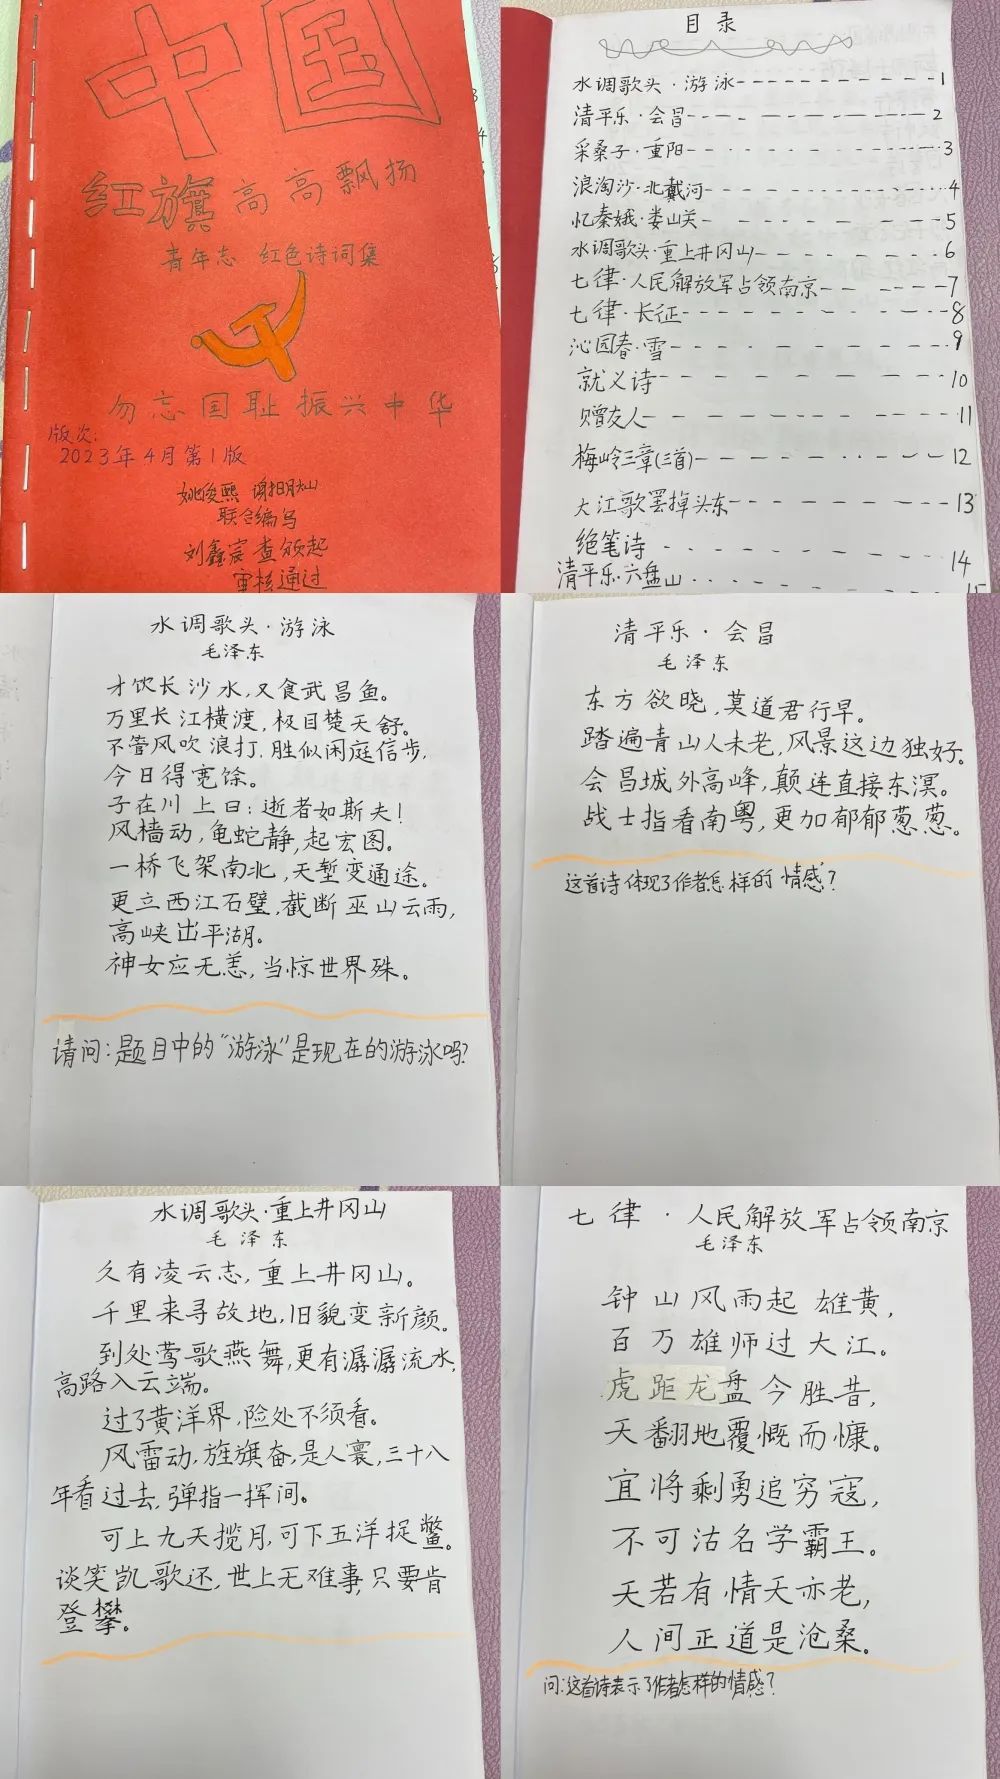 中国
红旗高高飘扬
青年志 红色诗词集
勿忘国耻 振兴中华
版次:
2023年4月第1版
姚俊熙 谢明灿
联合编写
刘鑫宸 查颂起
审核通过
目录
水调歌头·游泳 1
清平乐·会昌 2
采桑子·重阳 3
浪淘沙·北戴河 4
忆秦娥·娄山关 5
水调歌头·重上井冈山 6
七律·人民解放军占领南京 7
七律·长征 8
沁园春·雪 9
就义诗 10
赠友人 11
梅岭三章(三首) 12
大江歌罢掉头东 13
绝笔诗 14
清平乐·六盘山 15
水调歌头·游泳
毛泽东
才饮长沙水,又食武昌鱼。
万里长江横渡,极目楚天舒。
不管风吹浪打,胜似闲庭信步,
今日得宽馀。
子在川上曰:逝者如斯夫!
风樯动,龟蛇静,起宏图。
一桥飞架南北,天堑变通途。
更立西江石壁,截断巫山云雨,
高峡出平湖。
神女应无恙,当惊世界殊。
请问:题目中的“游泳”是现在的游泳吗?
清平乐·会昌
毛泽东
东方欲晓,莫道君行早。
踏遍青山人未老,风景这边独好。
会昌城外高峰,颠连直接东溟。
战士指看南粤,更加郁郁葱葱。
这首诗体现了作者怎样的情感?
水调歌头·重上井冈山
毛泽东
久有凌云志,重上井冈山。
千里来寻故地,旧貌变新颜。
到处莺歌燕舞,更有潺潺流水,
高路入云端。
过了黄洋界,险处不须看。
风雷动,旌旗奋,是人寰,三十八
年看过去,弹指一挥间。
可上九天揽月,可下五洋捉鳖。
谈笑凯歌还,世上无难事,只要肯
登攀。
七律·人民解放军占领南京
毛泽东
钟山风雨起雄黄,
百万雄师过大江。
虎距龙盘今胜昔,
天翻地覆慨而慷。
宜将剩勇追穷寇,
不可沽名学霸王。
天若有情天亦老,
人间正道是沧桑。
问:这首诗表示了作者怎样的情感?